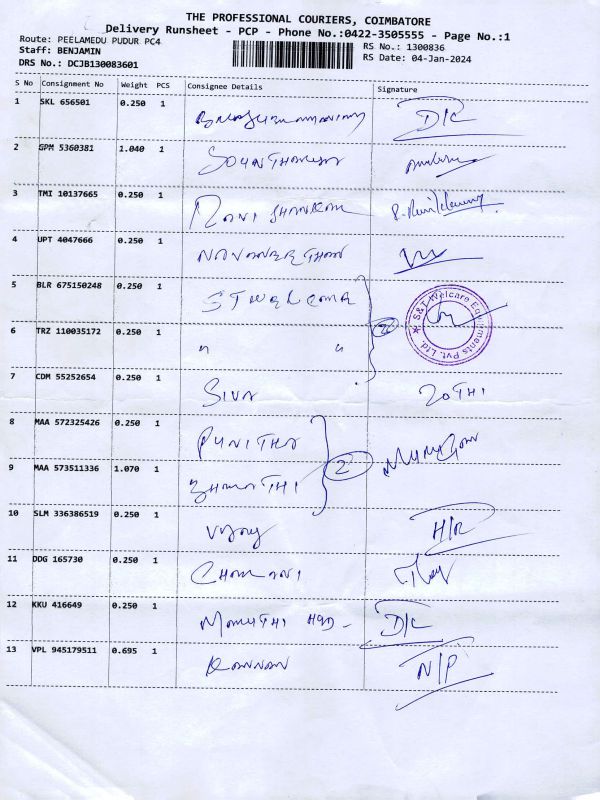 THE PROFESSIONAL COURIERS, COIMBATORE
Delivery Runsheet - PCP - Phone No.:0422-3505555 - Page No.:1
Route: PEELAMEDU PUDUR PC4
RS No.: 1300836
Staff: BENJAMIN
RS Date: 04-Jan-2024
DRS No.: DCJB130083601
S No Consignment No Weight PCS Consignee Details Signature
1 SKL 656501 0.250 1 D/C
2 GPM 5360381 1.040 1
3 TMI 10137665 0.250 1 RAVI SHANKAR
4 UPT 4047666 0.250 1 NAVANEETHAN
5 BLR 675150248 0.250 1 ST WELCARE
2 S&T Welcare Equipments Pvt. Ltd.
6 TRZ 110035172 0.250 1 " "
7 CDM 55252654 0.250 1 SIVA JOTHI
8 MAA 572325426 0.250 1 PUNITHA
2 Murugan
9 MAA 573511336 1.070 1 BHARATHI
10 SLM 336386519 0.250 1 Vijay H/R
11 DDG 165730 0.250 1
12 KKU 416649 0.250 1 D/C
13 VPL 945179511 0.695 1 KANNAN N/P